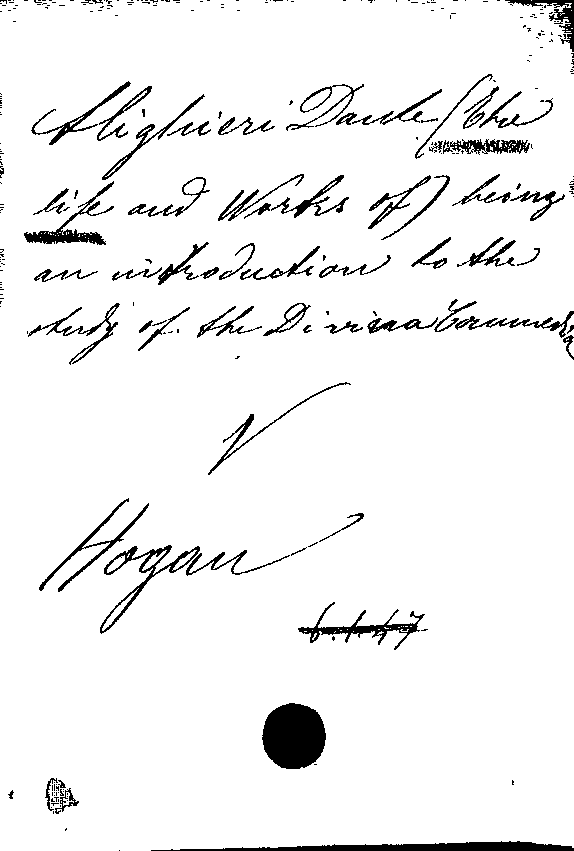 Alighieri Dante (The
life and Works of) being
an introduction to the
study of the Divina Commedia
V
Hogan
6.1.47